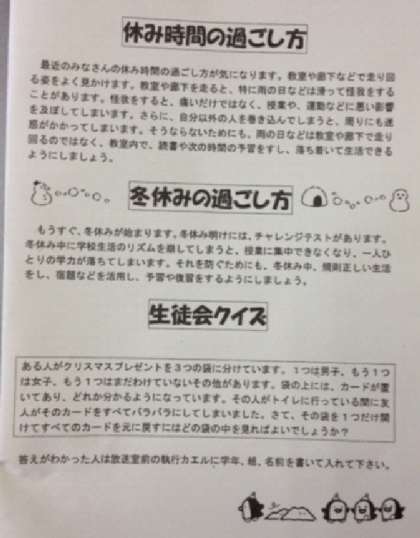 休み時間の過ごし方
最近のみなさんの休み時間の過ごし方が気になります。教室や廊下などで走り回
る姿をよく見かけます。教室や廊下を走ると、特に雨の日などは滑って怪我をする
ことがあります。怪我をすると、痛いだけではなく、授業や、運動などに悪い影響
を及ぼしてしまいます。さらに、自分以外の人を巻き込んでしまうと、周りにも迷
惑がかかってしまいます。そうならないためにも、雨の日などは教室や廊下で走り
回るのではなく、教室内で、読書や次の時間の予習をすし、落ち着いて生活できる
ようにしましょう。
冬休みの過ごし方
もうすぐ、冬休みが始まります。冬休み明けには、チャレンジテストがあります。
冬休み中に学校生活のリズムを崩してしまうと、授業に集中できなくなり、一人ひ
とりの学力が落ちてしまいます。それを防ぐためにも、冬休み中、規則正しい生活
をし、宿題などを活用し、予習や復習をするようにしましょう。
生徒会クイズ
ある人がクリスマスプレゼントを3つの袋に分けています。1つは男子、もう1つ
は女子、もう1つはまだわけていないその他があります。袋の上には、カードが置
いてあり、どれか分かるようになっています。その人がトイレに行っている間に友
人がそのカードをすべてバラバラにしてしまいました。さて、その袋を1つだけ開
けてすべてのカードを元に戻すにはどの袋の中を見ればよいでしょうか？
答えがわかった人は放送室前の執行カエルに学年、組、名前を書いて入れて下さい。